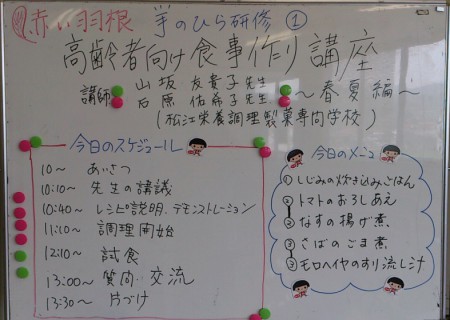 赤い羽根 手のひら研修 ①
高齢者向け食事作り講座
講師 山坂 友貴子先生
石原 佑希子先生
～春夏編～
(松江栄養調理製菓専門学校)
今日のスケジュール
10～ あいさつ
10:10～ 先生の講議
10:40～ レシピ説明・デモンストレーション
11:10～ 調理開始
12:10～ 試食
13:00～ 質問・交流
13:30～ 片づけ
今日のメニュー
①しじみの炊き込みごはん
②トマトのおろしあえ
②なすの揚げ煮
③さばのごま煮
③モロヘイヤのすり流し汁